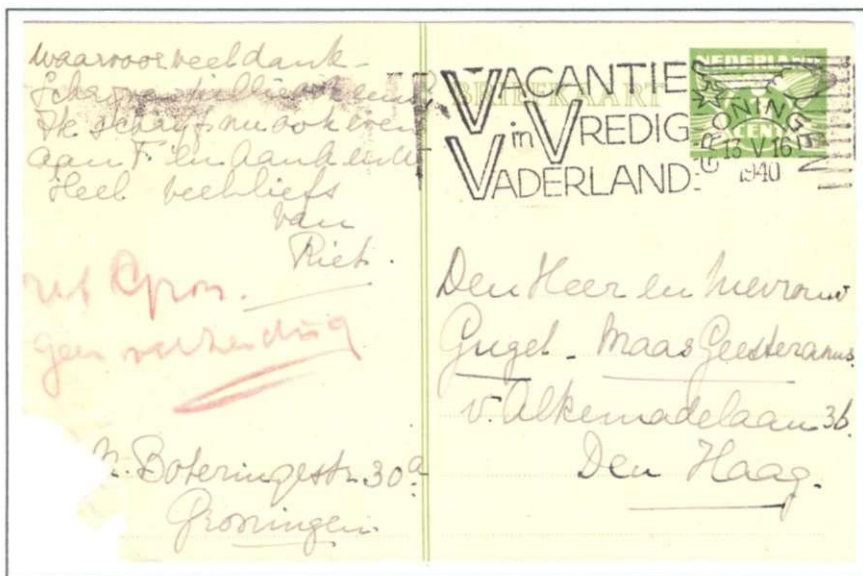 waarvoor veel dank –
Ik schrijf nu ook even
aan F. en
Heel veel liefs
van
Riet.
ret Gron.
geen verbinding
N. Boteringestr. 30a
Groningen.
BRIEFKAART
VACANTIE
in VREDIG
VADERLAND.
NEDERLAND
CENT
GRONINGEN
13 V 16
1940
Den Heer en Mevrouw
Gugel - Maas Geesteranus
v. Alkemadelaan 36.
Den Haag.